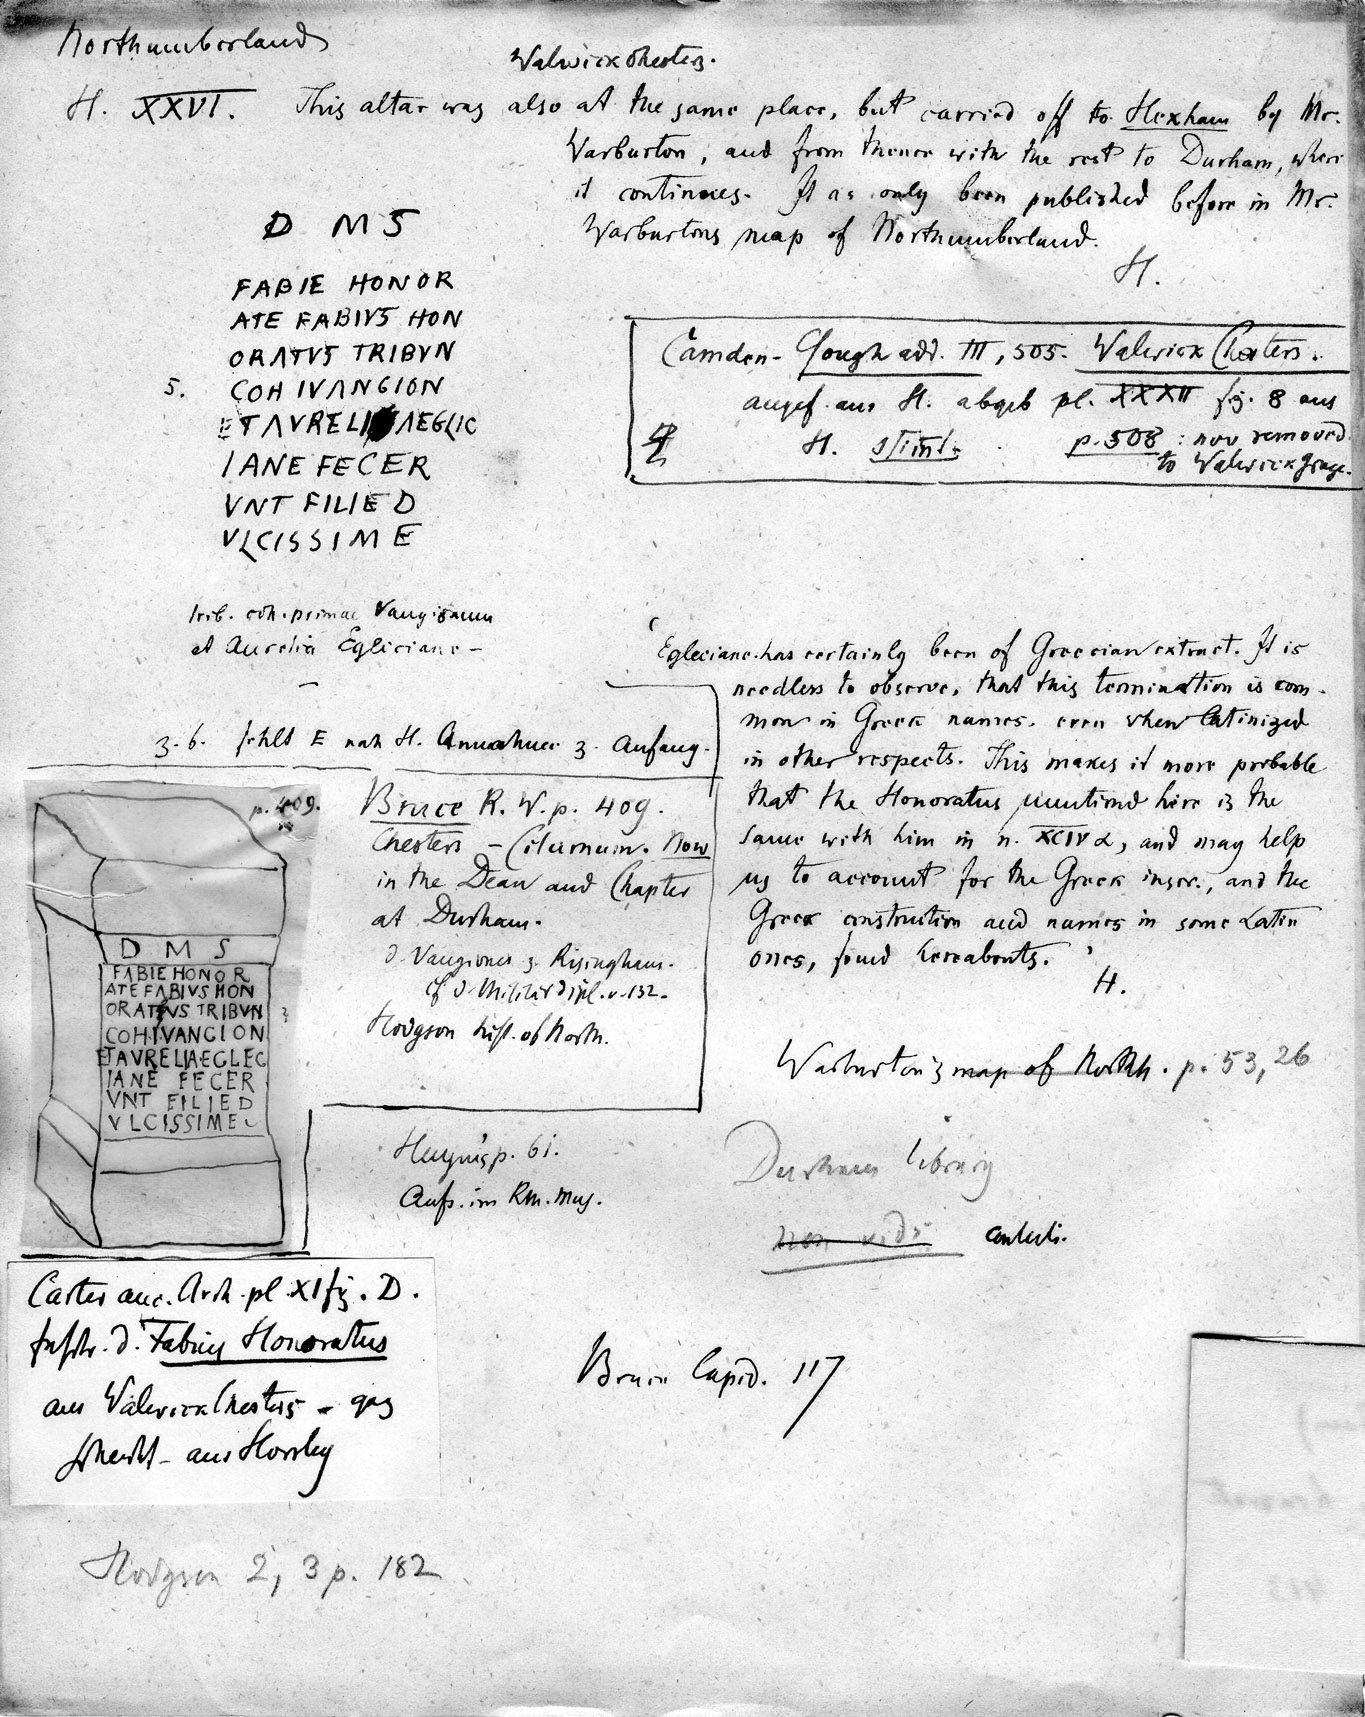 Northumberland
Walwick Chesters.
H. XXVI. This altar was also at the same place, but carried off to Hexham by Mr.
Warburton, and from thence with the rest to Durham, where
it continues. It as only been published before in Mr.
Warburtons map of Northumberland.
H.
D M S
FABIE HONOR
ATE FABIVS HON
ORATVS TRIBVN
5. COH IVANGION
ETAVRELI AEGLIC
IANE FECER
VNT FILIE D
VLCISSIME
Camden-Gough add. III, 505. Walwick Chesters.
angef. aus H. abgeb pl. XXXII fg. 8 aus
H. stimt. p. 508: now removed
to Walwick grange.
trib. coh. primae Vangionum
et Aurelia Egliciane -
z. 6. fehlt E nach H. Annahme z. Anfang.
Egleciane has certainly been of Greecian extract. It is
needless to observe, that this termination is com-
mon in Greek names, even when latinized
in other respects. This makes it more probable
that the Honoratus mentiond here is the
same with him in n. XCIV α, and may help
us to account for the Greek inscr., and the
Greek construction and names in some Latin
ones, found hereabouts.
H.
p. 409.
D M S
FABIE HONOR
ATE FABIVS HON
ORATVS TRIBVN ?
COH IVANGION
ETAVRELIAEGLEC
IANE FECER
VNT FILIED
VLCISSIME
Bruce R. W. p. 409.
Chesters - Cilurnum. Now
in the Dean and Chapter
at Durham.
d. Vangiones z. Risingham.
cf d. Militärdipl. v. 132.
Hodgson hist. of North.
Warburton's map of North. p. 53, 26
p. 61.
Aufs. im Rm. Mus.
Durham library
non vidi contuli.
Carter anc. Arch. pl. XI fg. D.
Inschr. d. Fabius Honoratus
aus Walwick Chesters - ganz
schlecht - aus Horsley
Bruce Lapid. 117
Hodgson 2, 3 p. 182